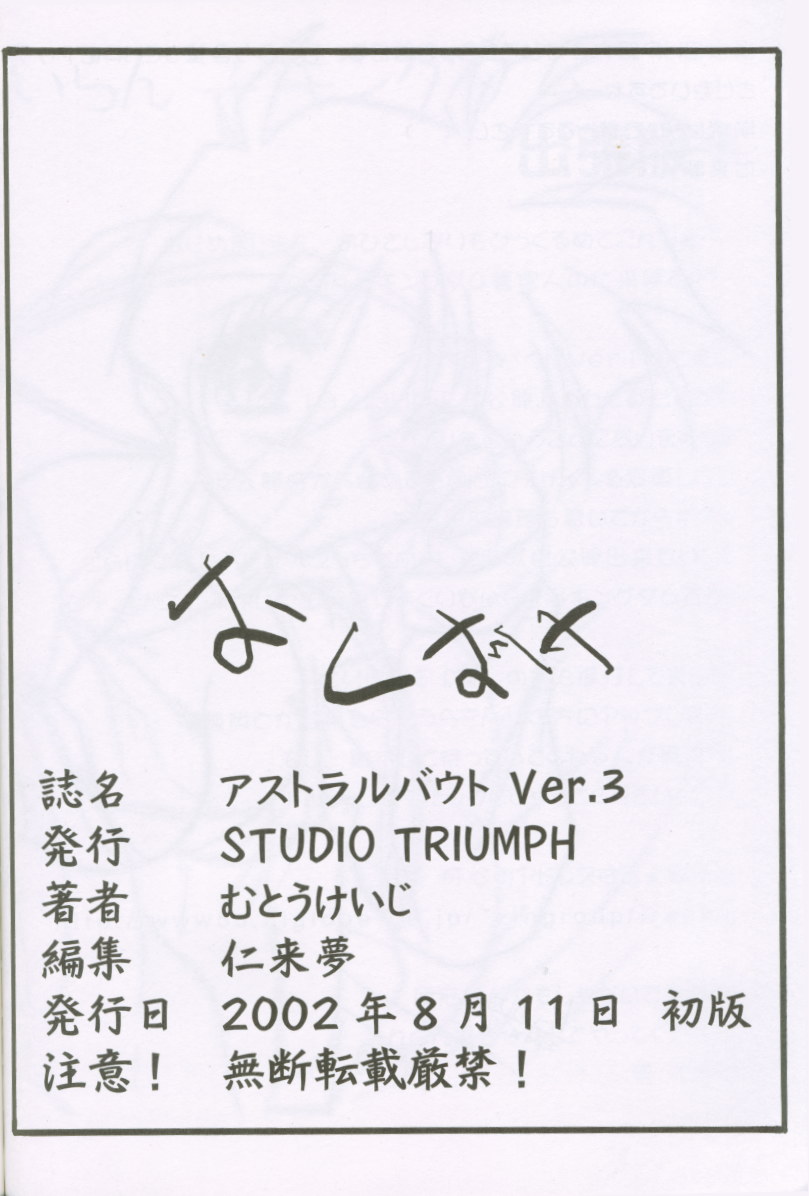 なしまい
誌名 アストラルバウト Ver.3
発行 STUDIO TRIUMPH
著者 むとうけいじ
編集 仁来夢
発行日 2002年8月11日 初版
注意! 無断転載厳禁!